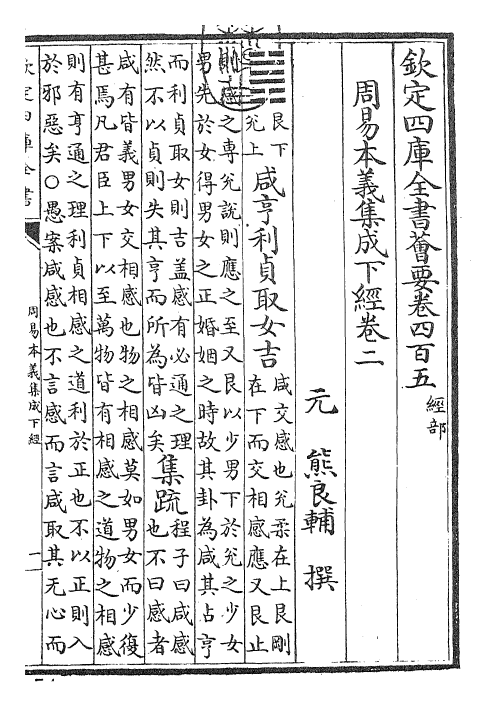 欽定四庫全書薈要卷四百五 經部
周易本義集成下經卷二
元 熊良輔 撰
艮下兌上 咸亨利貞取女吉 咸交感也兌柔在上艮剛在下而交相感應又艮止
則感之專兌說則應之至又艮以少男下於兌之少女
男先於女得男女之正婚姻之時故其卦為咸其占亨
而利貞取女則吉蓋感有必通之理
然不以貞則失其亨而所為皆凶矣 集疏 程子曰咸感也不曰感者
咸有皆義男女交相感也物之相感莫如男女而少復
甚焉凡君臣上下以至萬物皆有相感之道物之相感
則有亨通之理利貞相感之道利於正也不以正則入
於邪惡矣○愚案咸感也不言感而言咸取其无心而
欽定四庫全書
周易本義集成下經
一